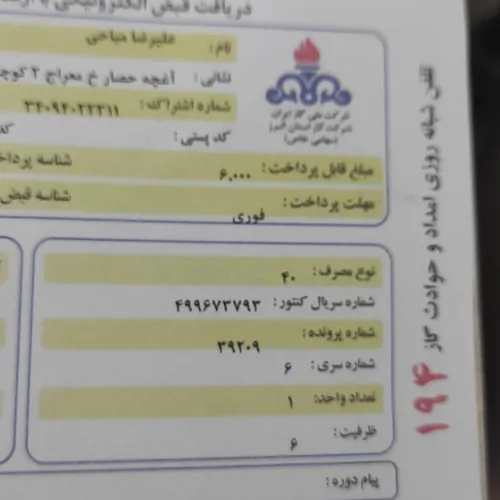 دریافت قبض الکترونیکی با ارسال
نام: علیرضا مباحی
نشانی: آغچه حصار خ معراج ۲ کوچه
شماره اشتراک: ۳۴۰۹۴۰۲۲۳۱۱
کد پستی:
شرکت ملی گاز ایران
شرکت گاز استان البرز
(سهامی خاص)
مبلغ قابل پرداخت: ۶,۰۰۰
شناسه پرداخ
مهلت پرداخت: فوری
شناسه قبض
نوع مصرف: ۴۰
شماره سریال کنتور: ۴۹۹۶۷۳۷۹۳
شماره پرونده: ۳۹۲۰۹
شماره سری: ۶
تعداد واحد: ۱
ظرفیت: ۶
پیام دوره:
تلفن شبانه روزی امداد و حوادث گاز ۱۹۴